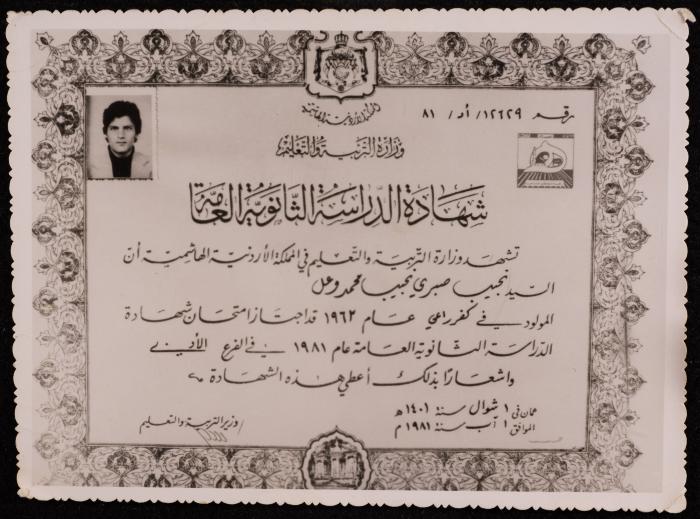 المملكة الأردنية الهاشمية
رقم ١٢٦٢٩/ أد/ ٨١
وزارة التربية والتعليم
شهادة الدراسة الثانوية العامة
تشهد وزارة التربية والتعليم في المملكة الأردنية الهاشمية أن
السيد نجيب صبري نجيب محمد وعل
المولود في كفرراعي عام ١٩٦٢ قد اجتاز امتحان شهادة
الدراسة الثانوية العامة عام ١٩٨١ في الفرع الأدبي
واشعارا بذلك أعطي هذه الشهادة
عمان في ١ شوال سنة ١٤٠١ هـ
الموافق ١ آب سنة ١٩٨١ م
وزير التربية والتعليم